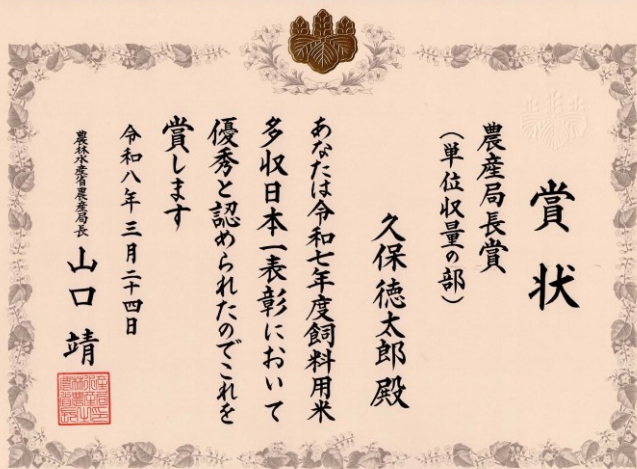 賞状
農産局長賞
(単位収量の部)
久保徳太郎殿
あなたは令和七年度飼料用米
多収日本一表彰において
優秀と認められたのでこれを
賞します
令和八年三月二十四日
農林水産省農産局長 山口靖